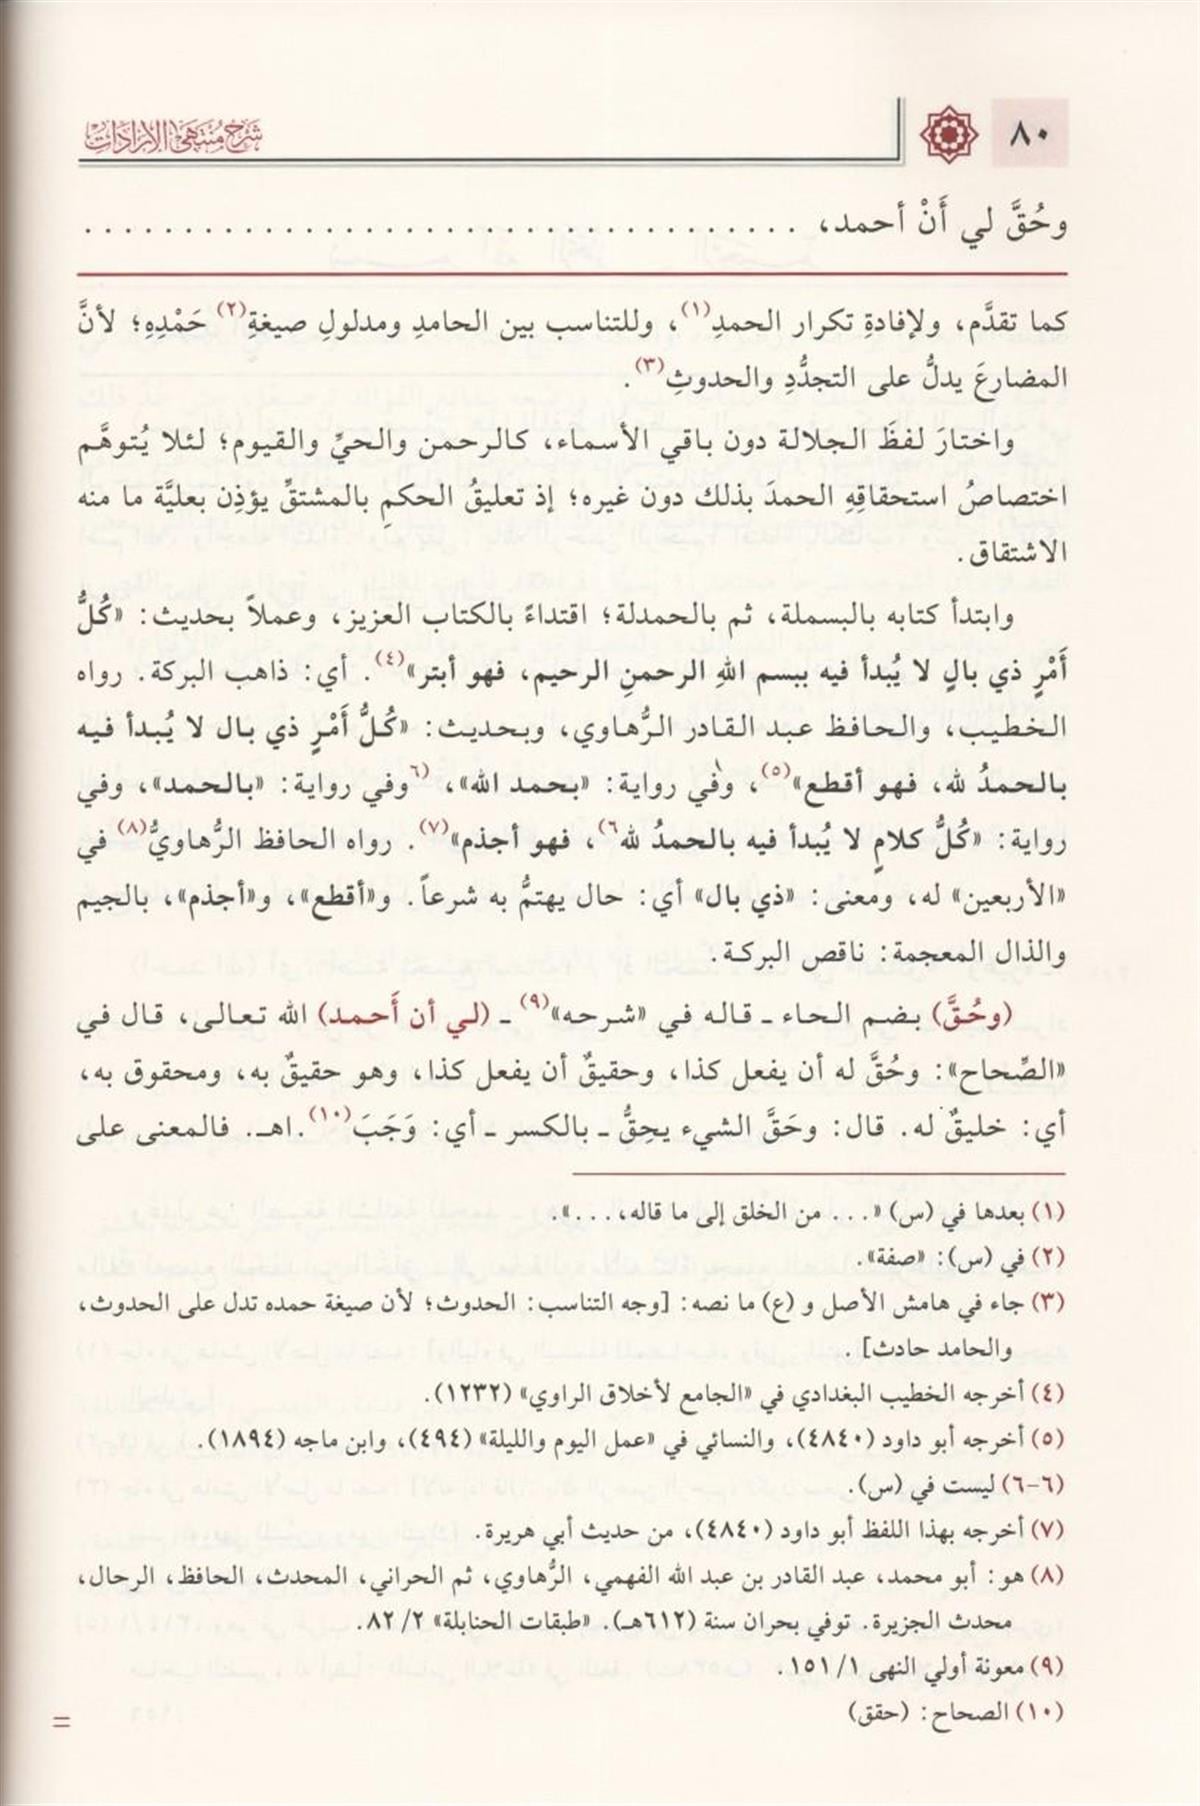 ٨٠
شرح منتهى الإرادات
وحُقَّ لي أَنْ أحمد، . . . . . . . . . . . . . . . . . . . . . . . . . . . . . . . . . . . .
كما تقدَّم، ولإفادةِ تكرار الحمدِ(١)، وللتناسب بين الحامدِ ومدلولِ صيغةِ(٢) حَمْدِهِ؛ لأنَّ
المضارعَ يدلُّ على التجدُّدِ والحدوثِ(٣).
واختارَ لفظَ الجلالة دون باقي الأسماء، كالرحمن والحيِّ والقيوم؛ لئلا يُتوهَّم
اختصاصُ استحقاقِهِ الحمدَ بذلك دون غيره؛ إذ تعليقُ الحكمِ بالمشتقِّ يؤذِن بعليَّة ما منه
الاشتقاق.
وابتدأ كتابه بالبسملة، ثم بالحمدلة؛ اقتداءً بالكتاب العزيز، وعملاً بحديث: «كُلُّ
أَمْرٍ ذي بالٍ لا يُبدأ فيه ببسم اللهِ الرحمنِ الرحيم، فهو أبتر»(٤). أي: ذاهب البركة. رواه
الخطيب، والحافظ عبد القادر الرُّهاوي، وبحديث: «كُلُّ أَمْرٍ ذي بال لا يُبدأ فيه
بالحمدُ لله، فهو أقطع»(٥)، وفي رواية: «بحمد الله»، (٦وفي رواية: «بالحمد»، وفي
رواية: «كُلُّ كلامٍ لا يُبدأ فيه بالحمدُ لله٦)، فهو أجذم»(٧). رواه الحافظ الرُّهاويُّ(٨) في
«الأربعين» له، ومعنى: «ذي بال» أي: حال يهتمُّ به شرعاً. و«أقطع»، و«أجذم»، بالجيم
والذال المعجمة: ناقص البركة.
(وحُقَّ) بضم الحاء ـ قاله في «شرحه»(٩) ـ (لي أن أَحمد) الله تعالى، قال في
«الصِّحاح»: وحُقَّ له أن يفعل كذا، وحقيقٌ أن يفعل كذا، وهو حقيقٌ به، ومحقوق به،
أي: خليقٌ له. قال: وحَقَّ الشيء يحِقُّ ـ بالكسر ـ أي: وَجَبَ(١٠).اهـ. فالمعنى على
(١) بعدها في (س) «... من الخلق إلى ما قاله، ...».
(٢) في (س): «صفة».
(٣) جاء في هامش الأصل و (ع) ما نصه: [وجه التناسب: الحدوث؛ لأن صيغة حمده تدل على الحدوث،
والحامد حادث].
(٤) أخرجه الخطيب البغدادي في «الجامع لأخلاق الراوي» (١٢٣٢).
(٥) أخرجه أبو داود (٤٨٤٠)، والنسائي في «عمل اليوم والليلة» (٤٩٤)، وابن ماجه (١٨٩٤).
(٦-٦) ليست في (س).
(٧) أخرجه بهذا اللفظ أبو داود (٤٨٤٠)، من حديث أبي هريرة.
(٨) هو: أبو محمد، عبد القادر بن عبد الله الفهمي، الرُّهاوي، ثم الحراني، المحدث، الحافظ، الرحال،
محدث الجزيرة. توفي بحران سنة (٦١٢هـ). «طبقات الحنابلة» ٢/ ٨٢.
(٩) معونة أولي النهى ١/ ١٥١.
(١٠) الصحاح: (حقق)
=